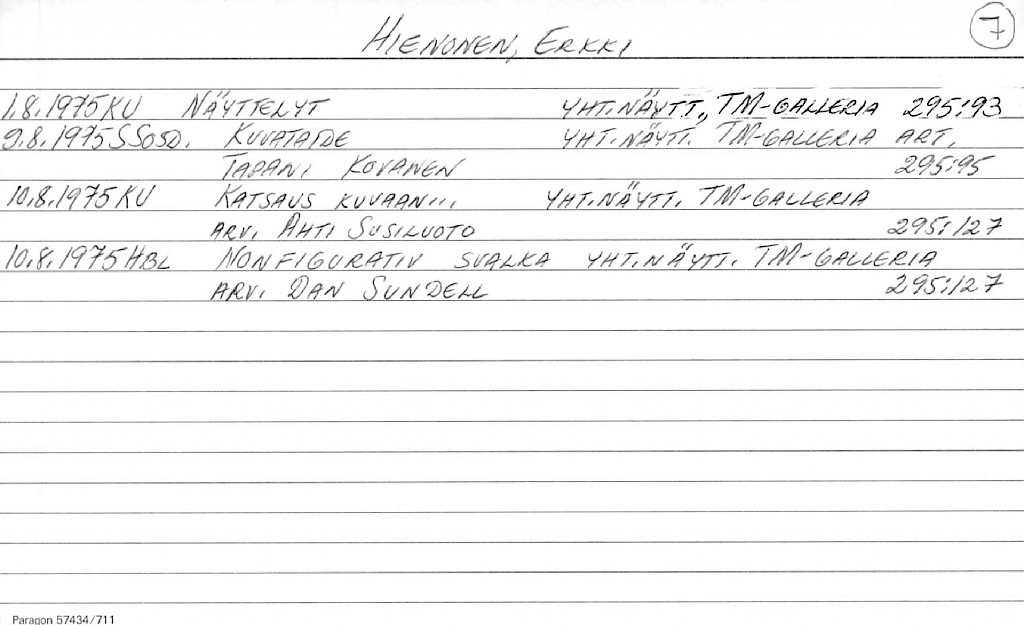 HIENONEN, ERKKI 7
1.8.1975 KU NÄYTTELYT YHT.NÄYTT., TM-GALLERIA 295:93
9.8.1975 SSOSD. KUVATAIDE YHT.NÄYTT. TM-GALLERIA ART,
TAPANI KOVANEN 295:95
10.8.1975 KU KATSAUS KUVAAN... YHT.NÄYTT. TM-GALLERIA
ARV. AHTI SUSILUOTO 295:127
10.8.1975 HBL NONFIGURATIV SVALKA YHT.NÄYTT. TM-GALLERIA
ARV. DAN SUNDELL 295:127
Paragon 57434/711